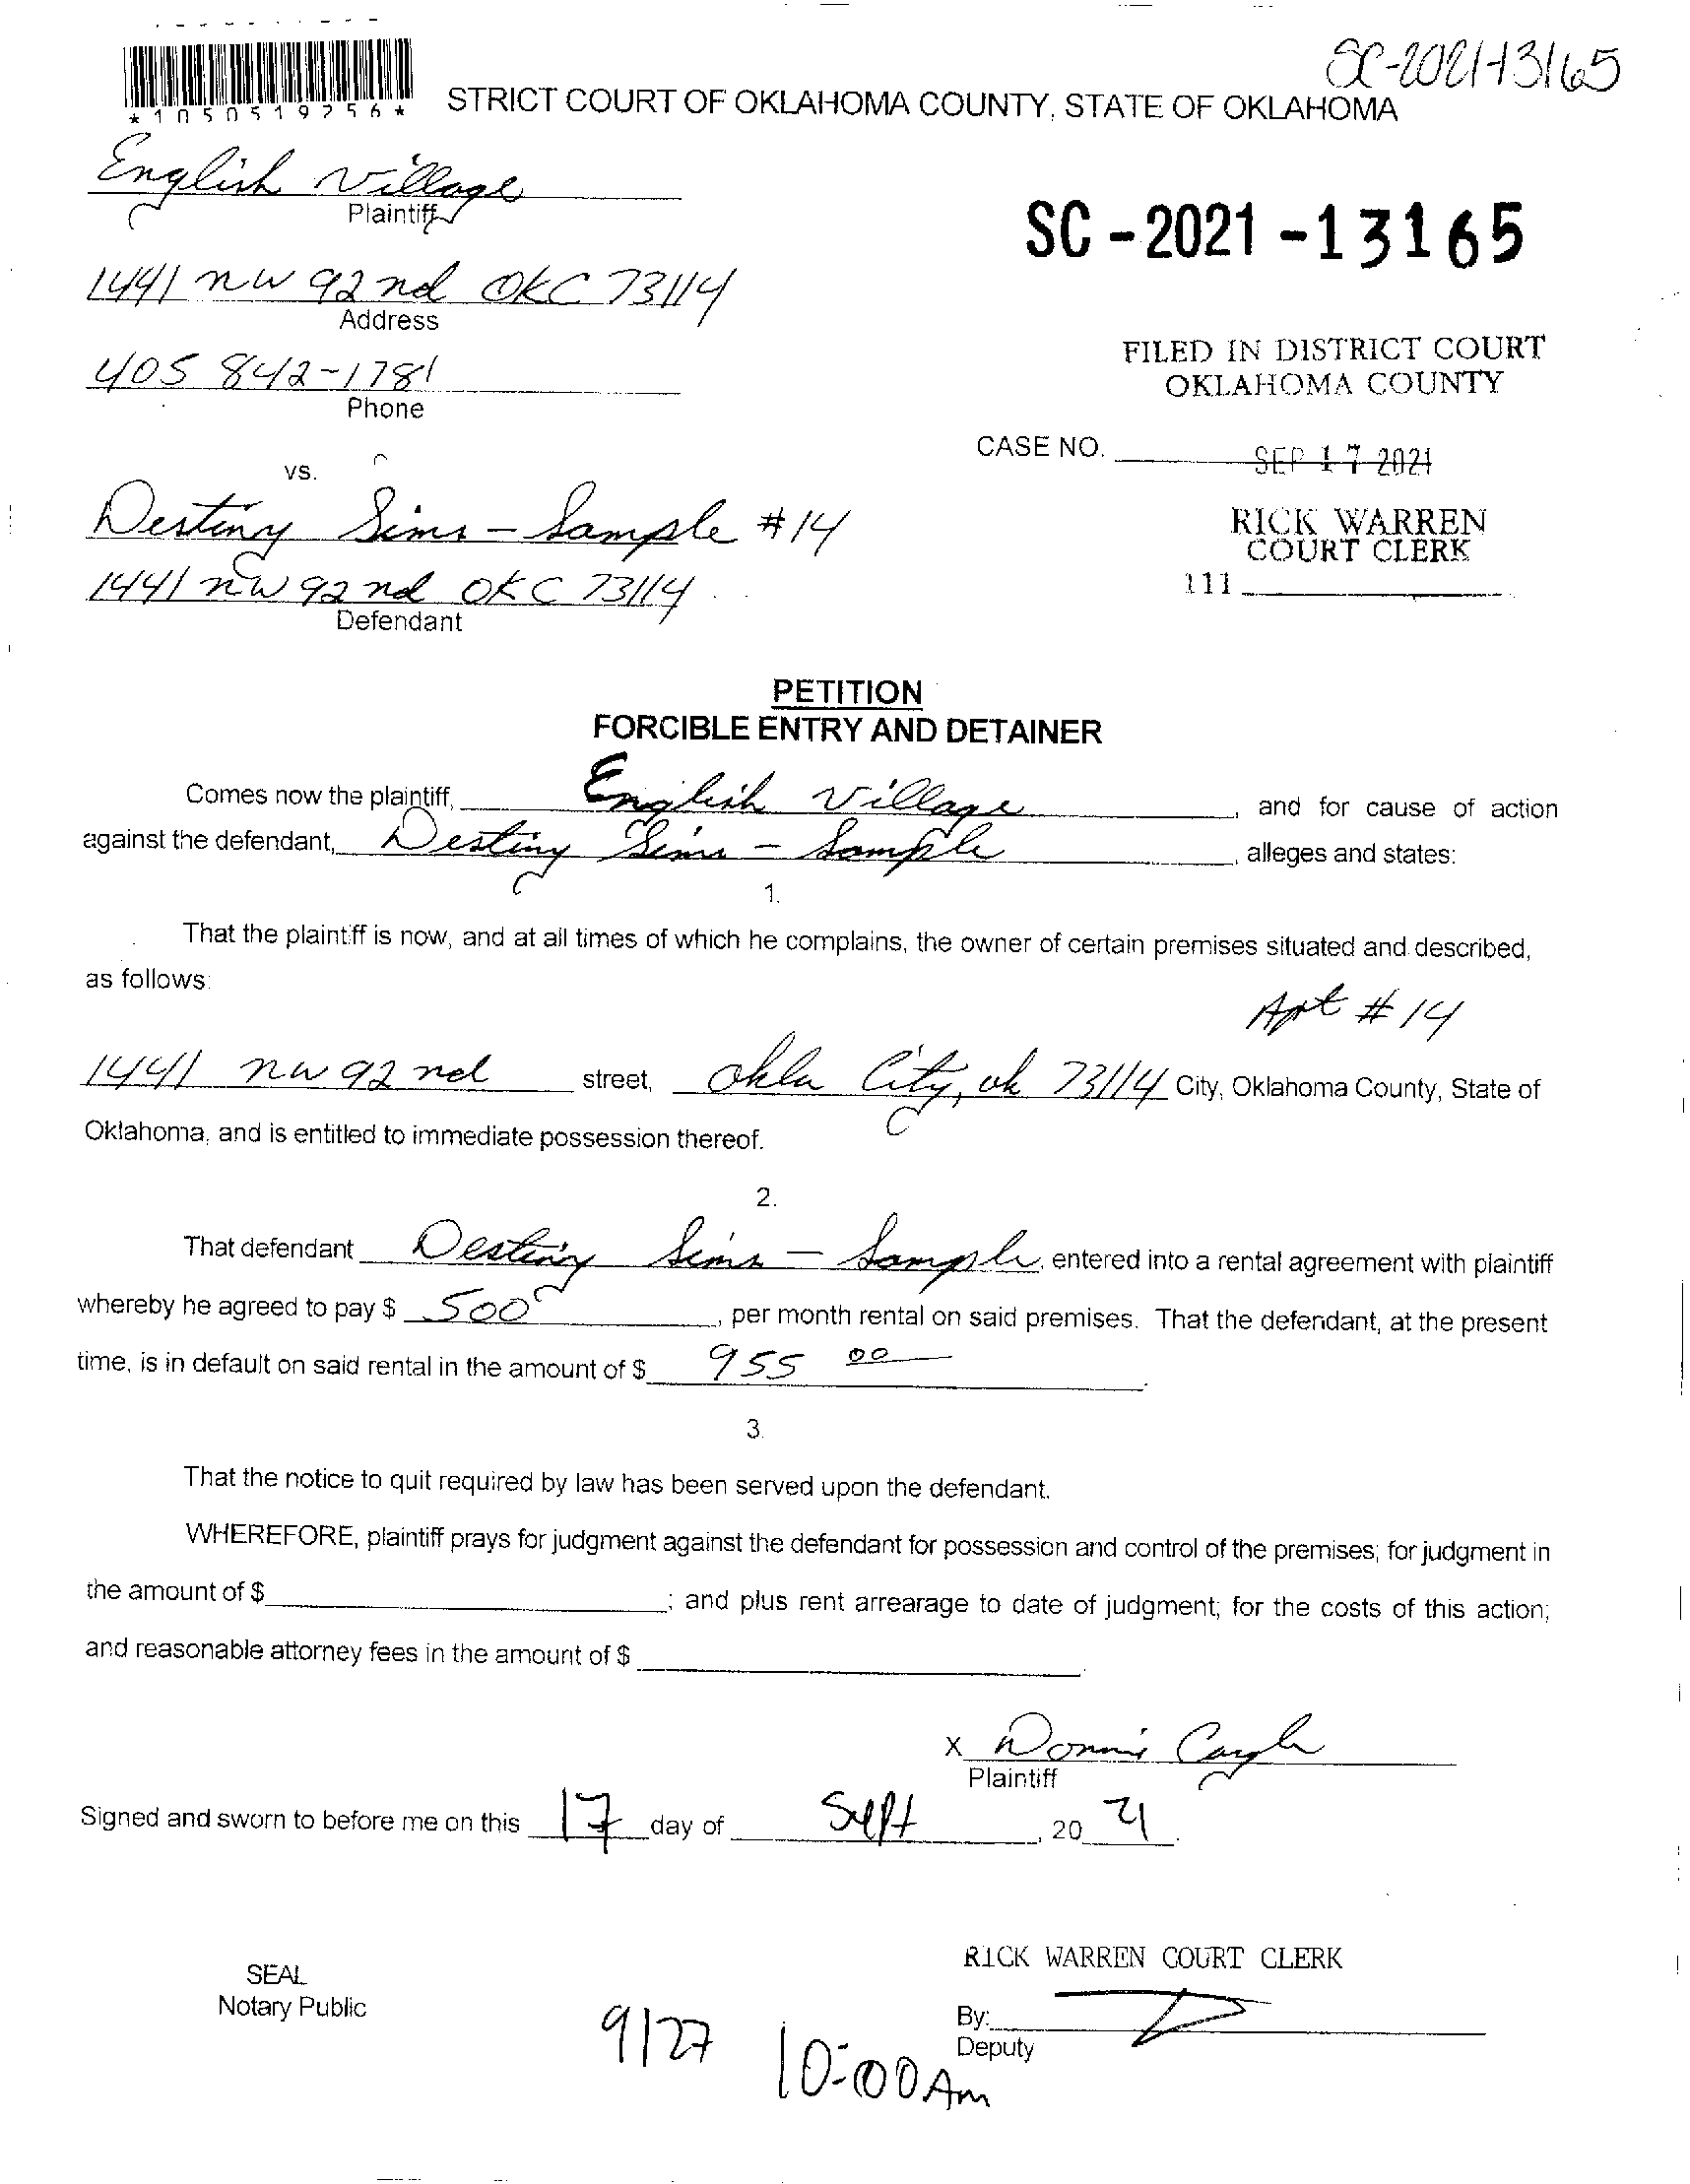 SC-2021-13165
*1050519256*
STRICT COURT OF OKLAHOMA COUNTY, STATE OF OKLAHOMA
English Village
Plaintiff
SC-2021-13165
1441 nw 92 nd OKC 73114
Address
FILED IN DISTRICT COURT
OKLAHOMA COUNTY
405 842-1781
Phone
CASE NO.
SEP 17 2021
vs.
Destiny Sims - Sample #14
RICK WARREN
COURT CLERK
1441 nw 92 nd OKC 73114
111
Defendant
PETITION
FORCIBLE ENTRY AND DETAINER
Comes now the plaintiff, English Village, and for cause of action
against the defendant, Destiny Sims - Sample, alleges and states:
1.
That the plaintiff is now, and at all times of which he complains, the owner of certain premises situated and described,
as follows:
Apt #14
1441 nw 92 nd street, Okla City, ok 73114 City, Oklahoma County, State of
Oklahoma, and is entitled to immediate possession thereof.
2.
That defendant Destiny Sims - Sample, entered into a rental agreement with plaintiff
whereby he agreed to pay $ 500, per month rental on said premises. That the defendant, at the present
time, is in default on said rental in the amount of $ 955 00.
3.
That the notice to quit required by law has been served upon the defendant.
WHEREFORE, plaintiff prays for judgment against the defendant for possession and control of the premises; for judgment in
the amount of $; and plus rent arrearage to date of judgment; for the costs of this action;
and reasonable attorney fees in the amount of $
X Donnie
Plaintiff
Signed and sworn to before me on this 17 day of Sept, 20 21.
RICK WARREN COURT CLERK
SEAL
Notary Public
By:
Deputy
9/27 10:00 Am